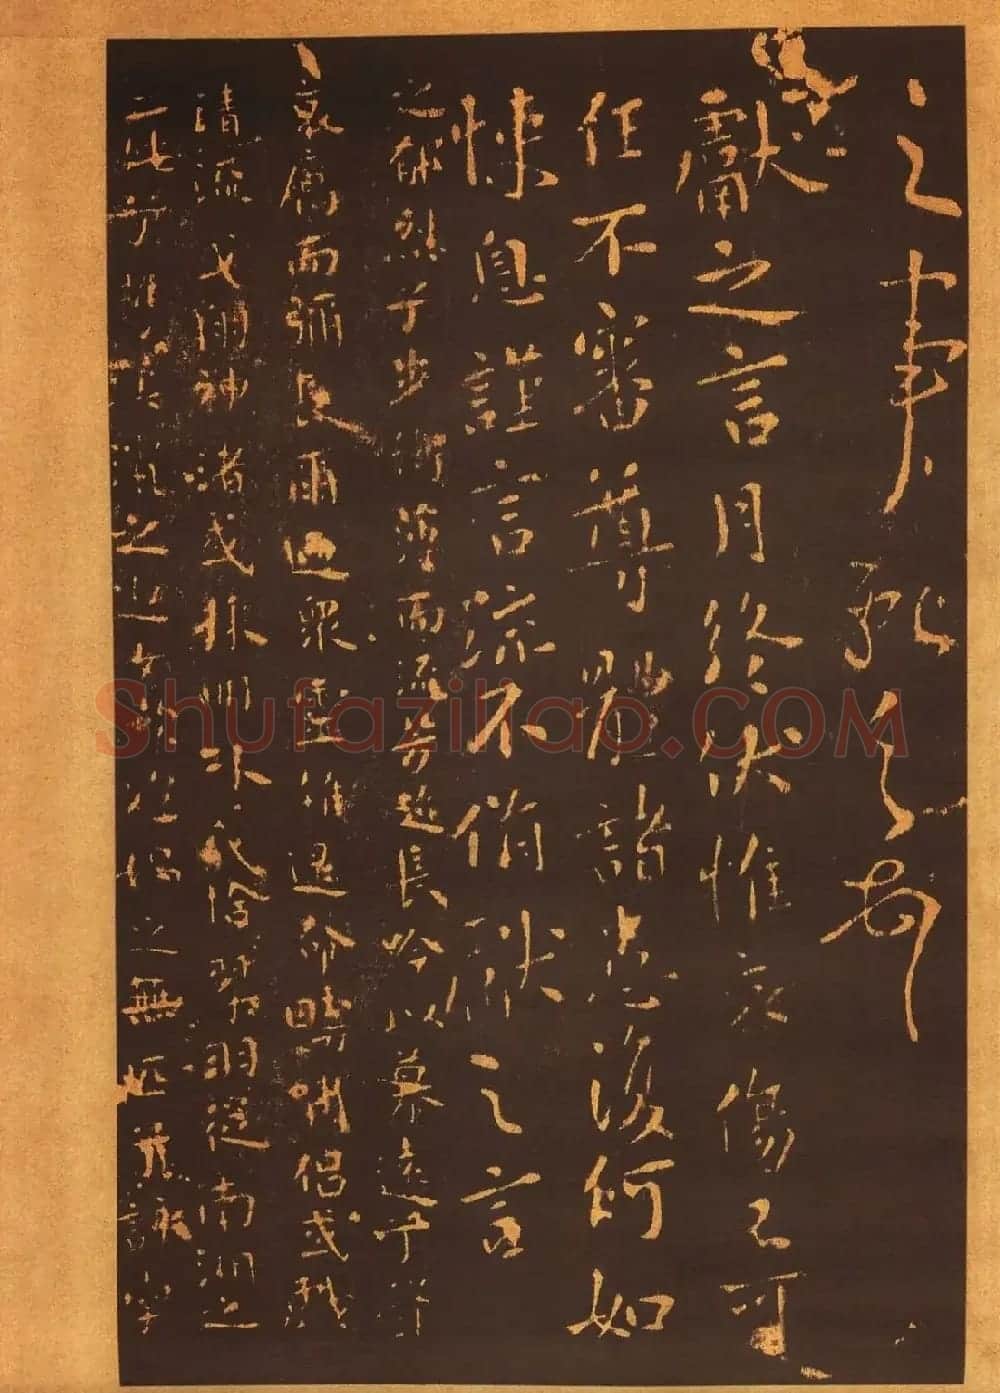 之事
獻之言月終伏惟哀傷不可
任不審尊體諸恙復何如
悚息謹言疏不備獻之言
之郁烈步蘅薄而流芳超長吟以慕遠兮聲
哀厲而彌長爾迺眾靈雜遝命疇嘯侶或戲
清流或翔神渚或採明珠或拾翠羽從南湘之
二妃兮攜漢之遊女歎炮媧之無匹兮詠牽
Shufaziliao.COM